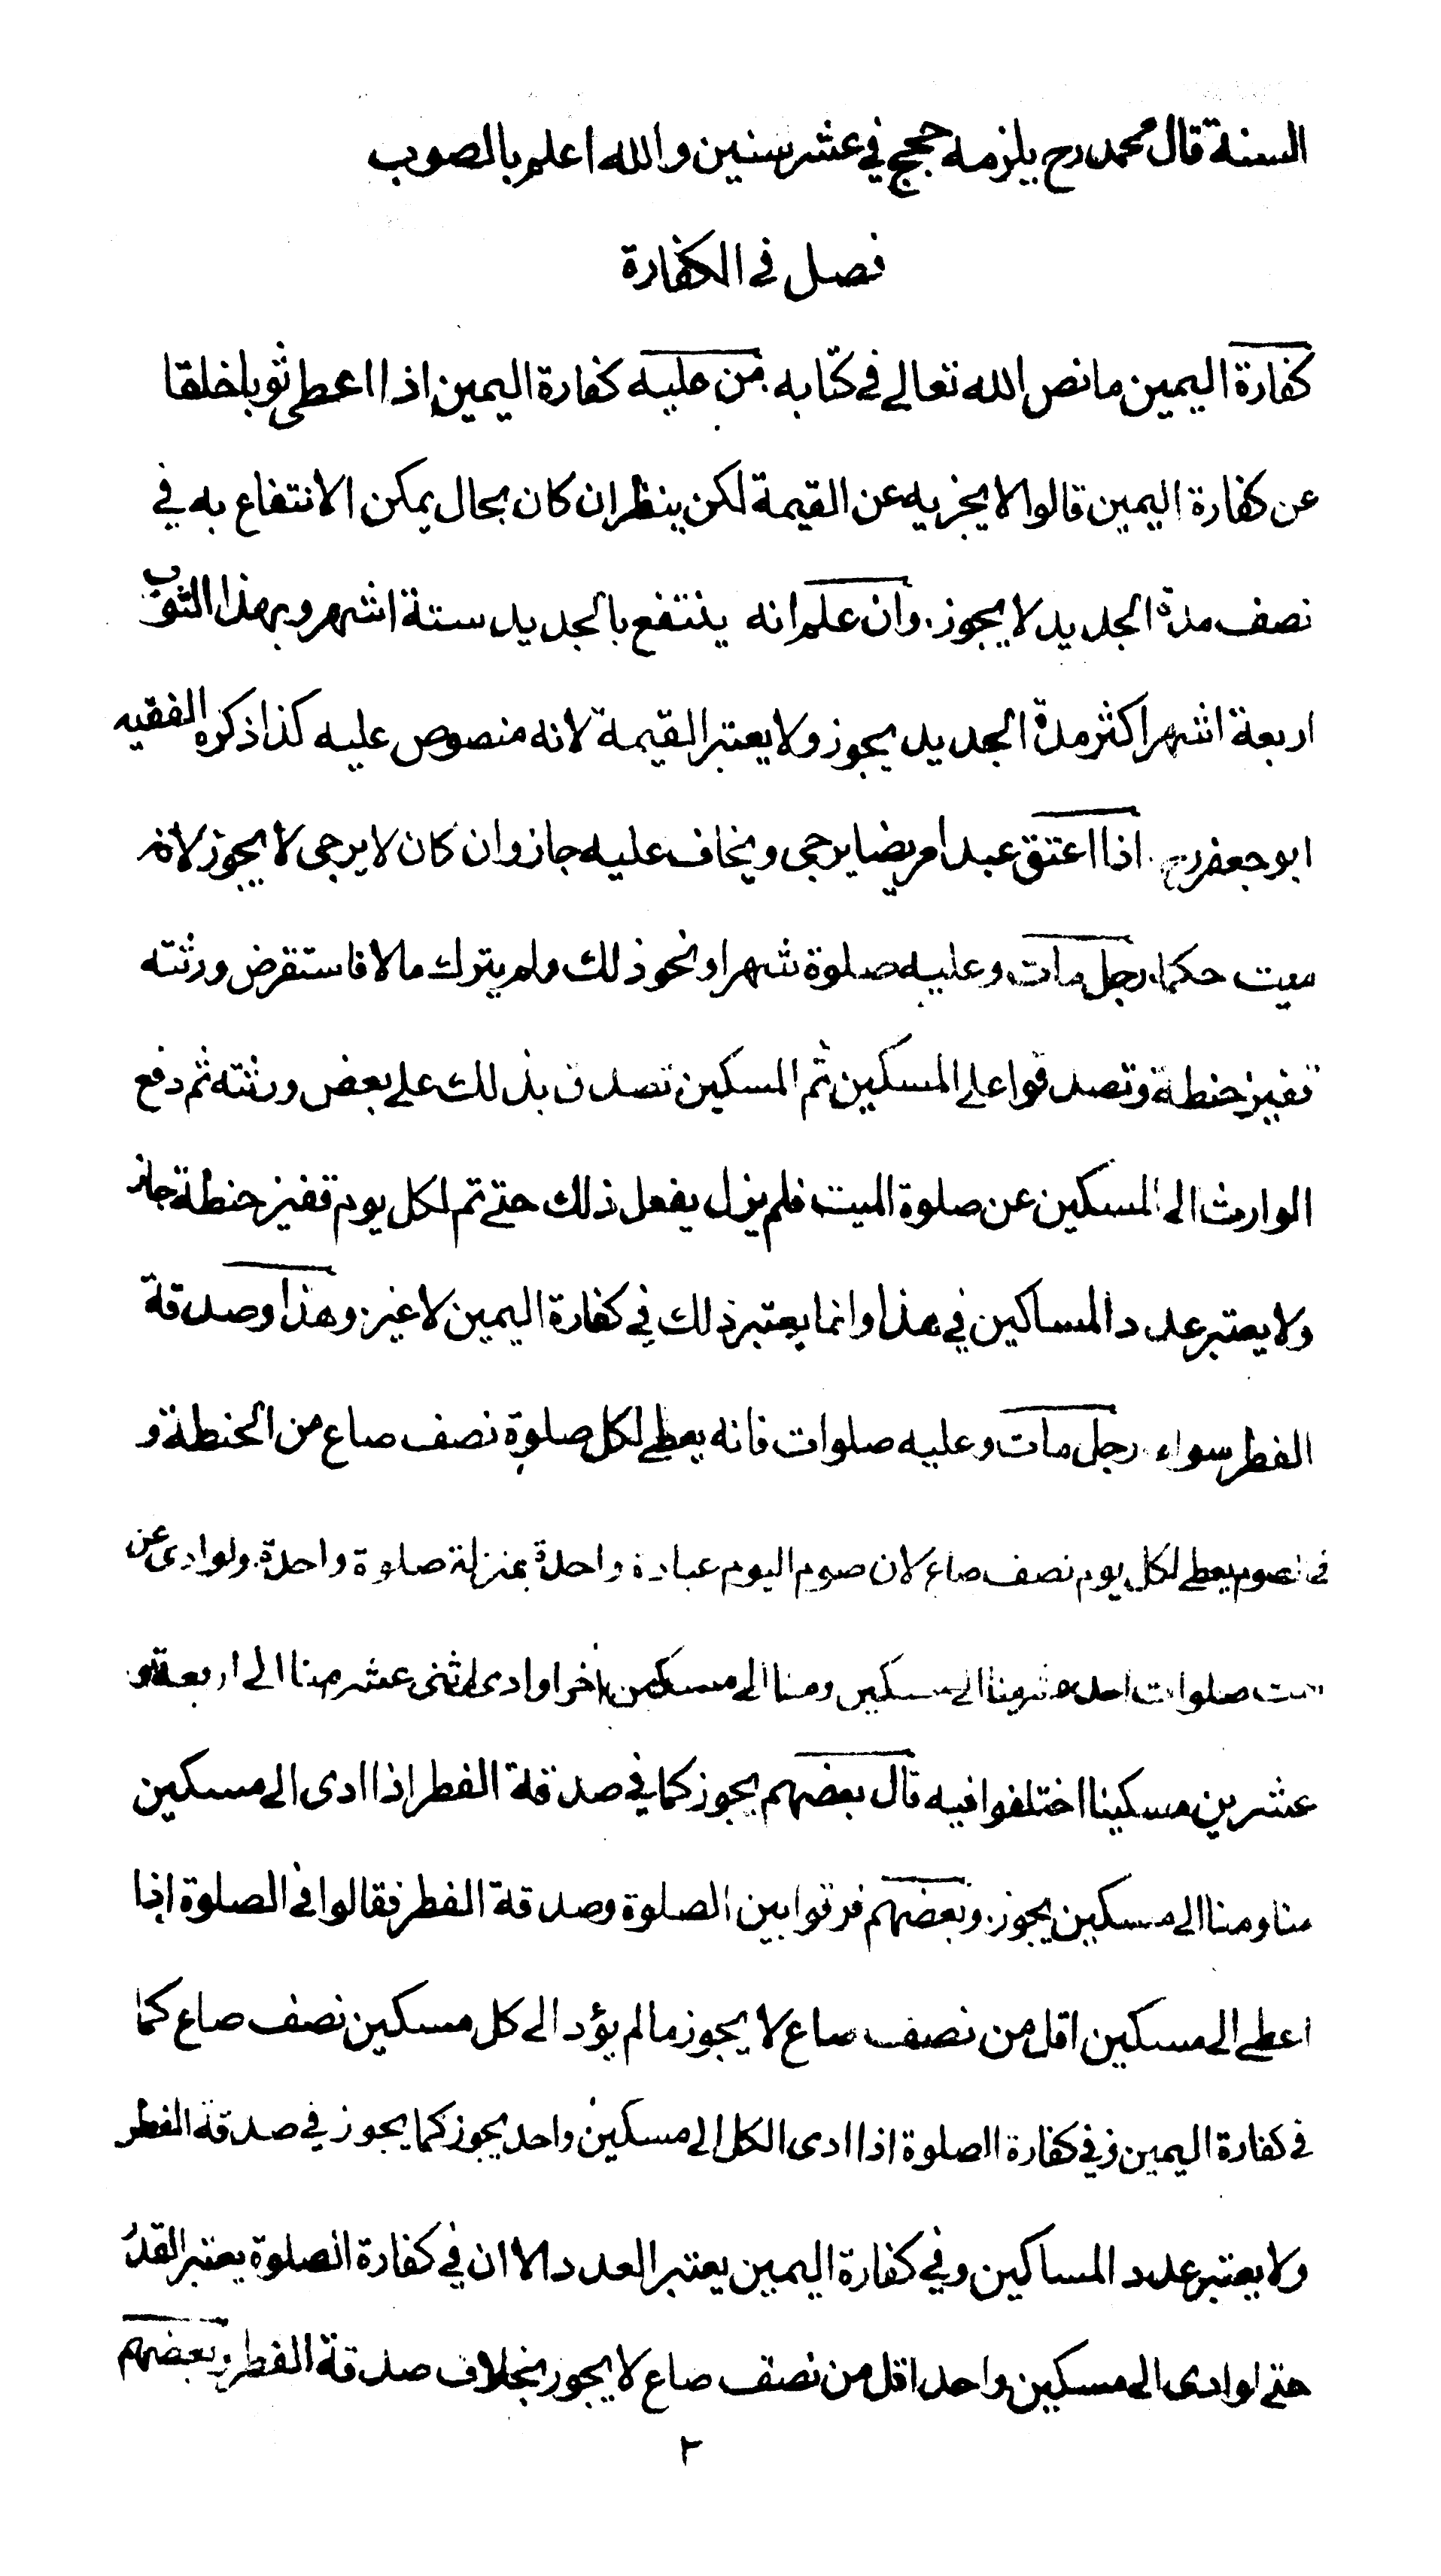 السنة قال محمد رح يلزمه حجج في عشر سنين والله اعلم بالصوب
فصل في الكفارة
كفارة اليمين ما نص الله تعالى في كتابه . من عليه كفارة اليمين اذا اعطى ثوبا خلقا
عن كفارة اليمين قالوا لا يجزيه عن القيمة لكن ينظر ان كان بحال يمكن الانتفاع به في
نصف مدة الجديد لا يجوز . وان علم انه ينتفع بالجديد ستة اشهر وبهذا الثوب
اربعة اشهر اكثر مدة الجديد يجوز ولا يعتبر القيمة لانه منصوص عليه كذا ذكره الفقيه
ابو جعفر رح . اذا اعتق عبدا مريضا يرجى ويخاف عليه جاز وان كان لا يرجى لا يجوز لانه
ميت حكما . رجل مات وعليه صلوة شهر او نحو ذلك ولم يترك مالا فاستقرض ورثته
قفيز حنطة وتصدقوا على المسكين ثم المسكين تصدق بذلك على بعض ورثته ثم دفع
الوارث الى المسكين عن صلوة الميت فلم يزل يفعل ذلك حتى تم لكل يوم قفيز حنطة جاز
ولا يعتبر عدد المساكين في هذا وانما يعتبر ذلك في كفارة اليمين لا غير . وهذا وصدقة
الفطر سواء . رجل مات وعليه صلوات فانه يعطى لكل صلوة نصف صاع من الحنطة و
في الصوم يعطى لكل يوم نصف صاع لان صوم اليوم عبادة واحدة بمنزلة صلوة واحدة . ولو ادى عن
ست صلوات احد عشر منا الى مسكين ومنا الى مسكين اخر او ادى اثنى عشر منا الى اربعة و
عشرين مسكينا اختلفوا فيه قال بعضهم يجوز كما في صدقة الفطر اذا ادى الى مسكين
منا ومنا الى مسكين يجوز . وبعضهم فرقوا بين الصلوة وصدقة الفطر فقالوا في الصلوة اذا
اعطى الى مسكين اقل من نصف صاع لا يجوز ما لم يؤد الى كل مسكين نصف صاع كما
في كفارة اليمين وفي كفارة الصلوة اذا ادى الكل الى مسكين واحد يجوز كما يجوز في صدقة الفطر
ولا يعتبر عدد المساكين وفي كفارة اليمين يعتبر العدد الا ان في كفارة الصلوة يعتبر القدر
حتى لو ادى الى مسكين واحد اقل من نصف صاع لا يجوز بخلاف صدقة الفطر وبعضهم
٢